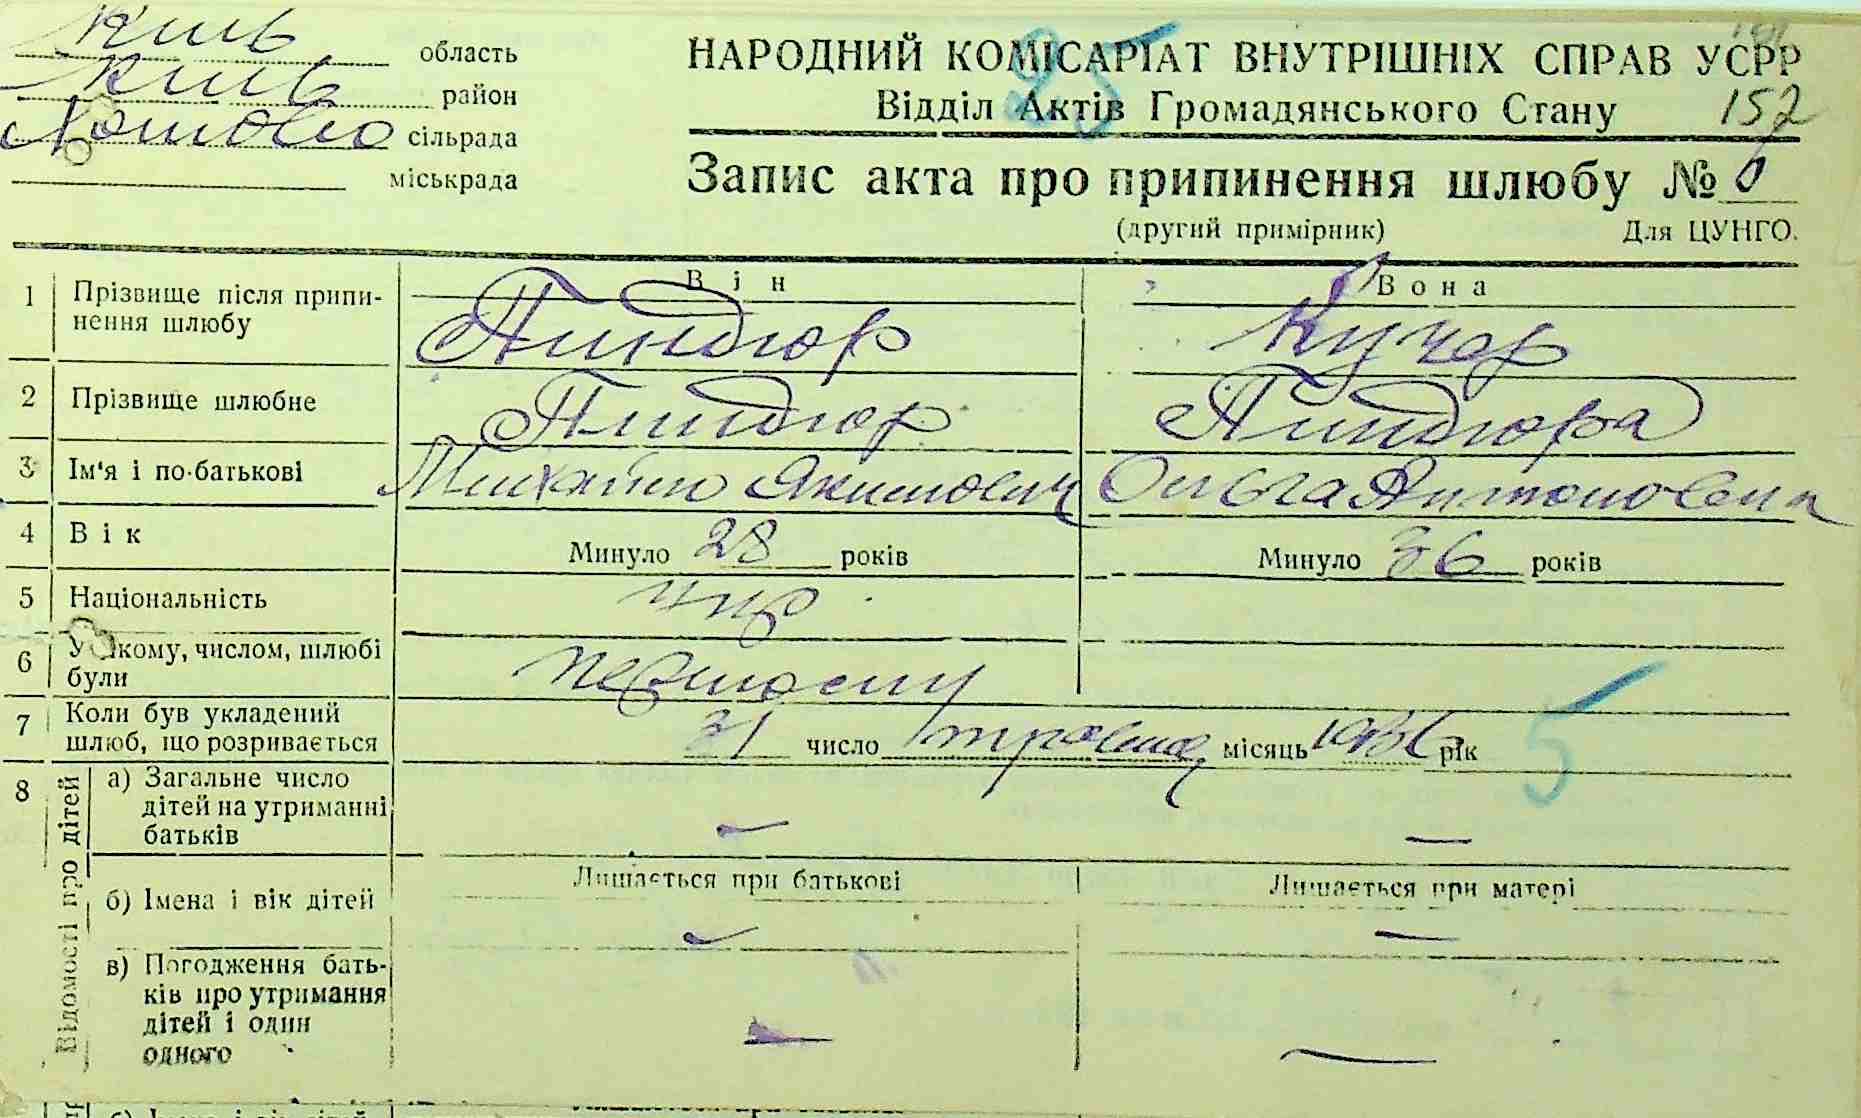 Київ область
Київ район
сільрада
міськрада
НАРОДНИЙ КОМІСАРІАТ ВНУТРІШНІХ СПРАВ УСРР
Відділ Актів Громадянського Стану 157
25
Запис акта про припинення шлюбу №
(другий примірник) Для ЦУНГО.
Він Вона
1 Прізвище після припи-
нення шлюбу Пиндюр Кучер
2 Прізвище шлюбне Пиндюр Пиндюра
3 Ім'я і по-батькові Михайло Якимович Ольга Антоновна
4 Вік Минуло 28 років Минуло 36 років
5 Національність укр
6 У якому, числом, шлюбі
були першому
7 Коли був укладений
шлюб, що розривається 31 число травня місяць 1936 рік
5
8 Відомості про дітей
а) Загальне число
дітей на утриманні
батьків — —
б) Імена і вік дітей Лишається при батькові Лишається при матері
— —
в) Погодження бать-
ків про утримання
дітей і один
одного — —